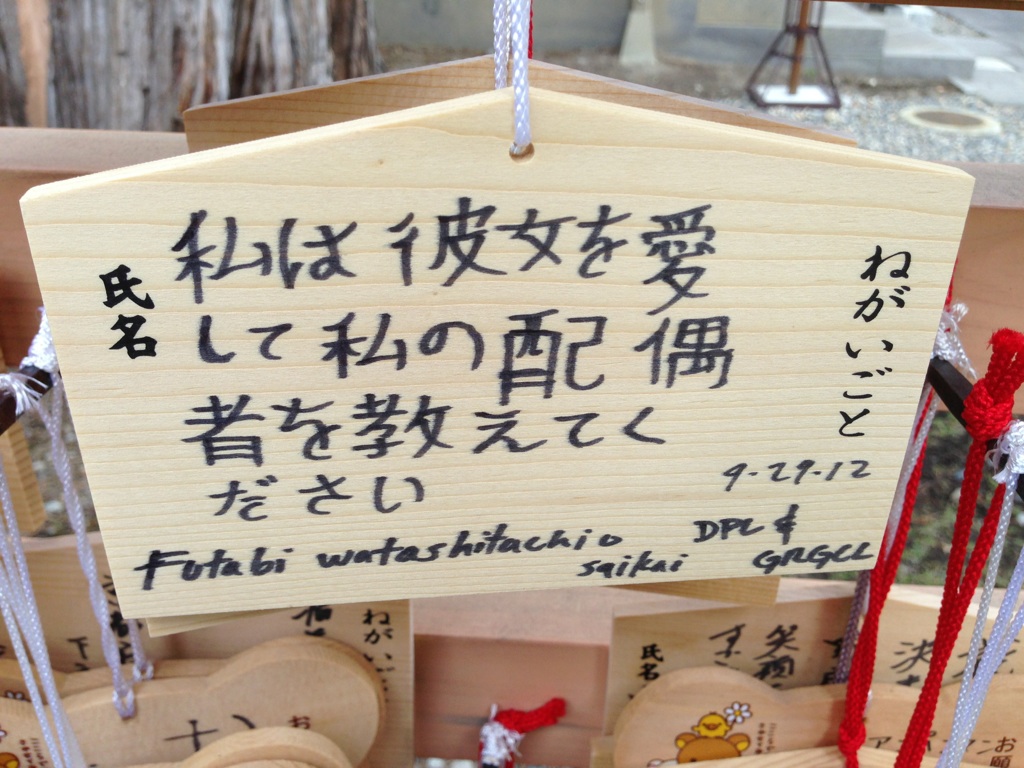 ねがいごと
私は彼女を愛
して私の配偶
者を教えてく
ださい
9-29-12
Futabi watashitachio
saikai
DPL &
GRGLL
氏名
ねがい
氏名
笑顔